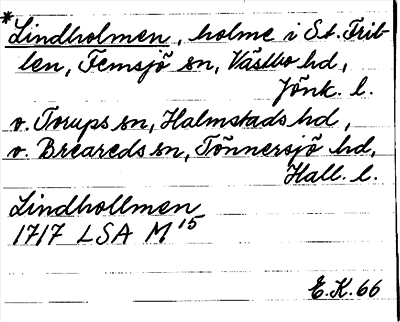 *Lindholmen, holme i St. Frib-
len, Femsjö sn, Västbo hd,
Jönk. l.
v. Torups sn, Halmstads hd,
v. Breareds sn, Tönnersjö hd,
Hall. l.
Lindhollmen
1717 LSA M 15
E.K. 66